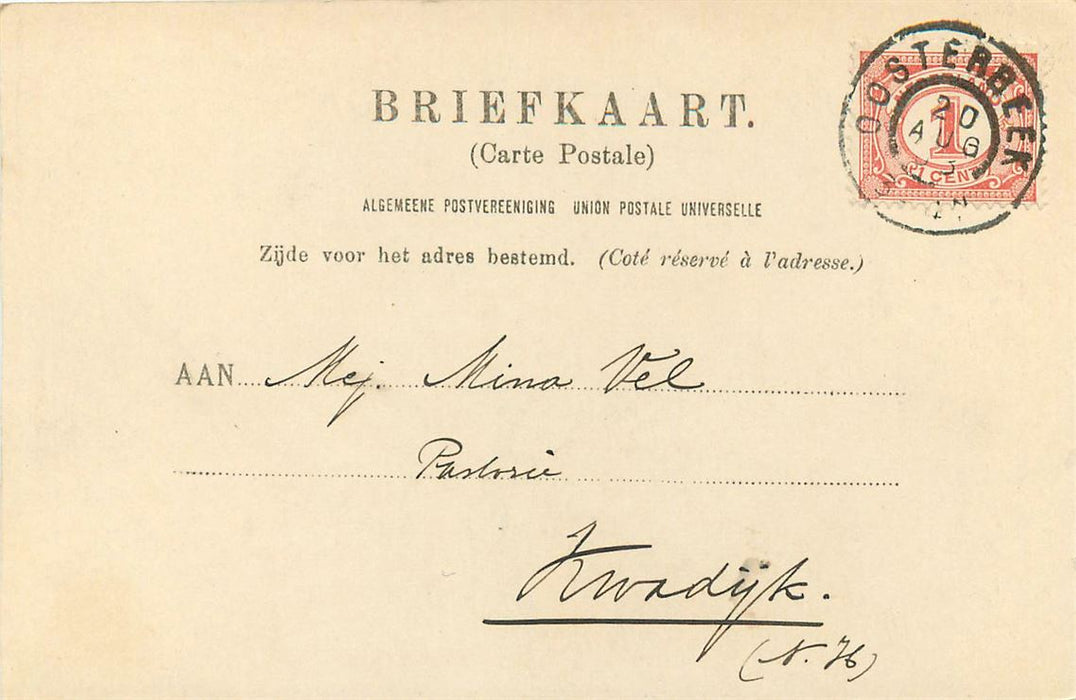 BRIEFKAART.
(Carte Postale)
ALGEMEENE POSTVEREENIGING UNION POSTALE UNIVERSELLE
Zijde voor het adres bestemd. (Coté réservé à l'adresse.)
AAN Mej. Mina Vel
Pastorie
Kwadijk.
(N. H)
OOSTERBEEK
20
AUG
1
CENT